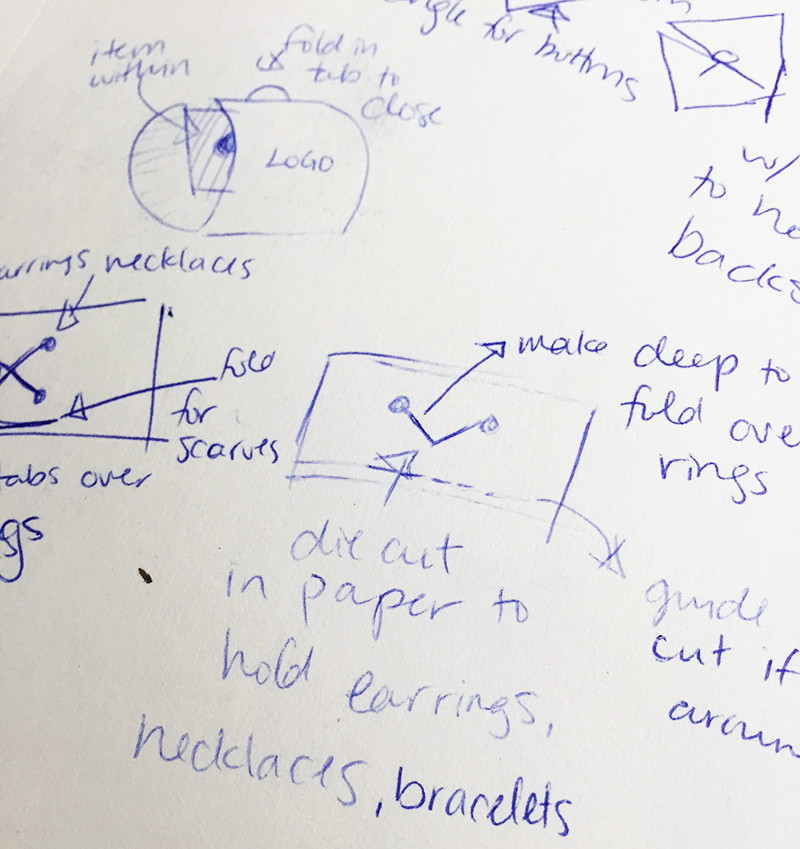 for buttons
item
within
fold in
tab to
close
LOGO
w/
to
backs
necklaces
fold
for
scarves
tabs over
make deep to
fold over
rings
die cut
in paper to
hold earrings,
necklaces, bracelets
guide
cut if